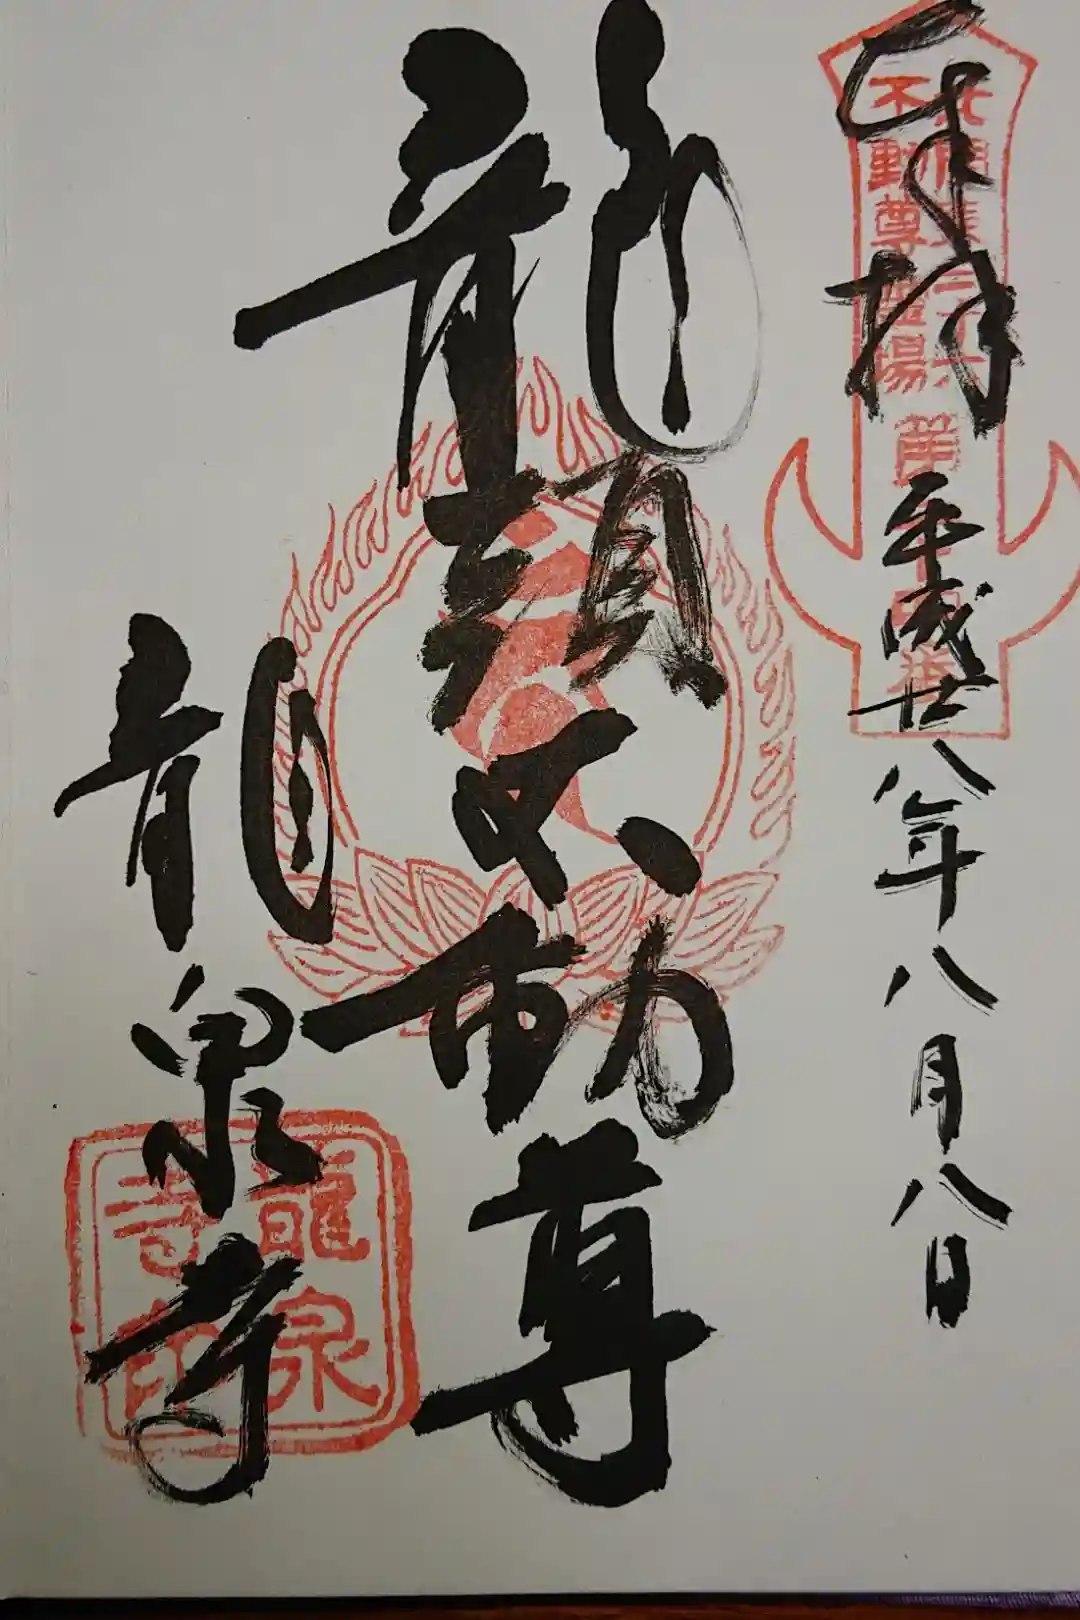 奉拝
不動尊霊場
平成廿八年八月八日
龍頭不動尊
龍泉寺
龍泉
寺印